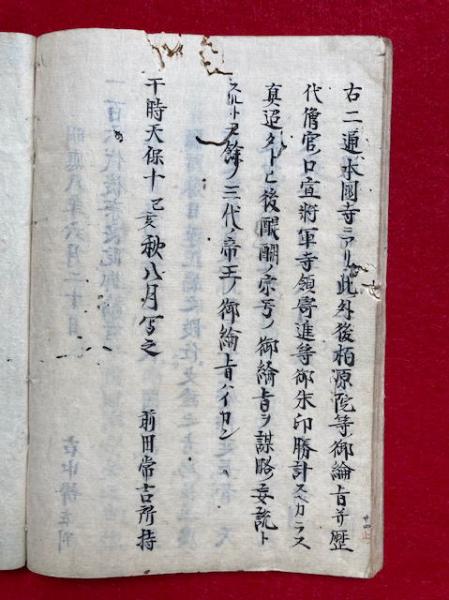 右二通本國寺ニアリ此外後柏原院等御綸旨并歴
代僧官口宣将軍寺領寄進等御朱印勝計スヘカラス
真迢タトヒ後醍醐ノ宗号ノ御綸旨ヲ謀略妄説ト
スルトモ餘ノ三代帝王ノ御綸旨ハイカン
干時天保十己亥秋八月写之　前田常吉所持